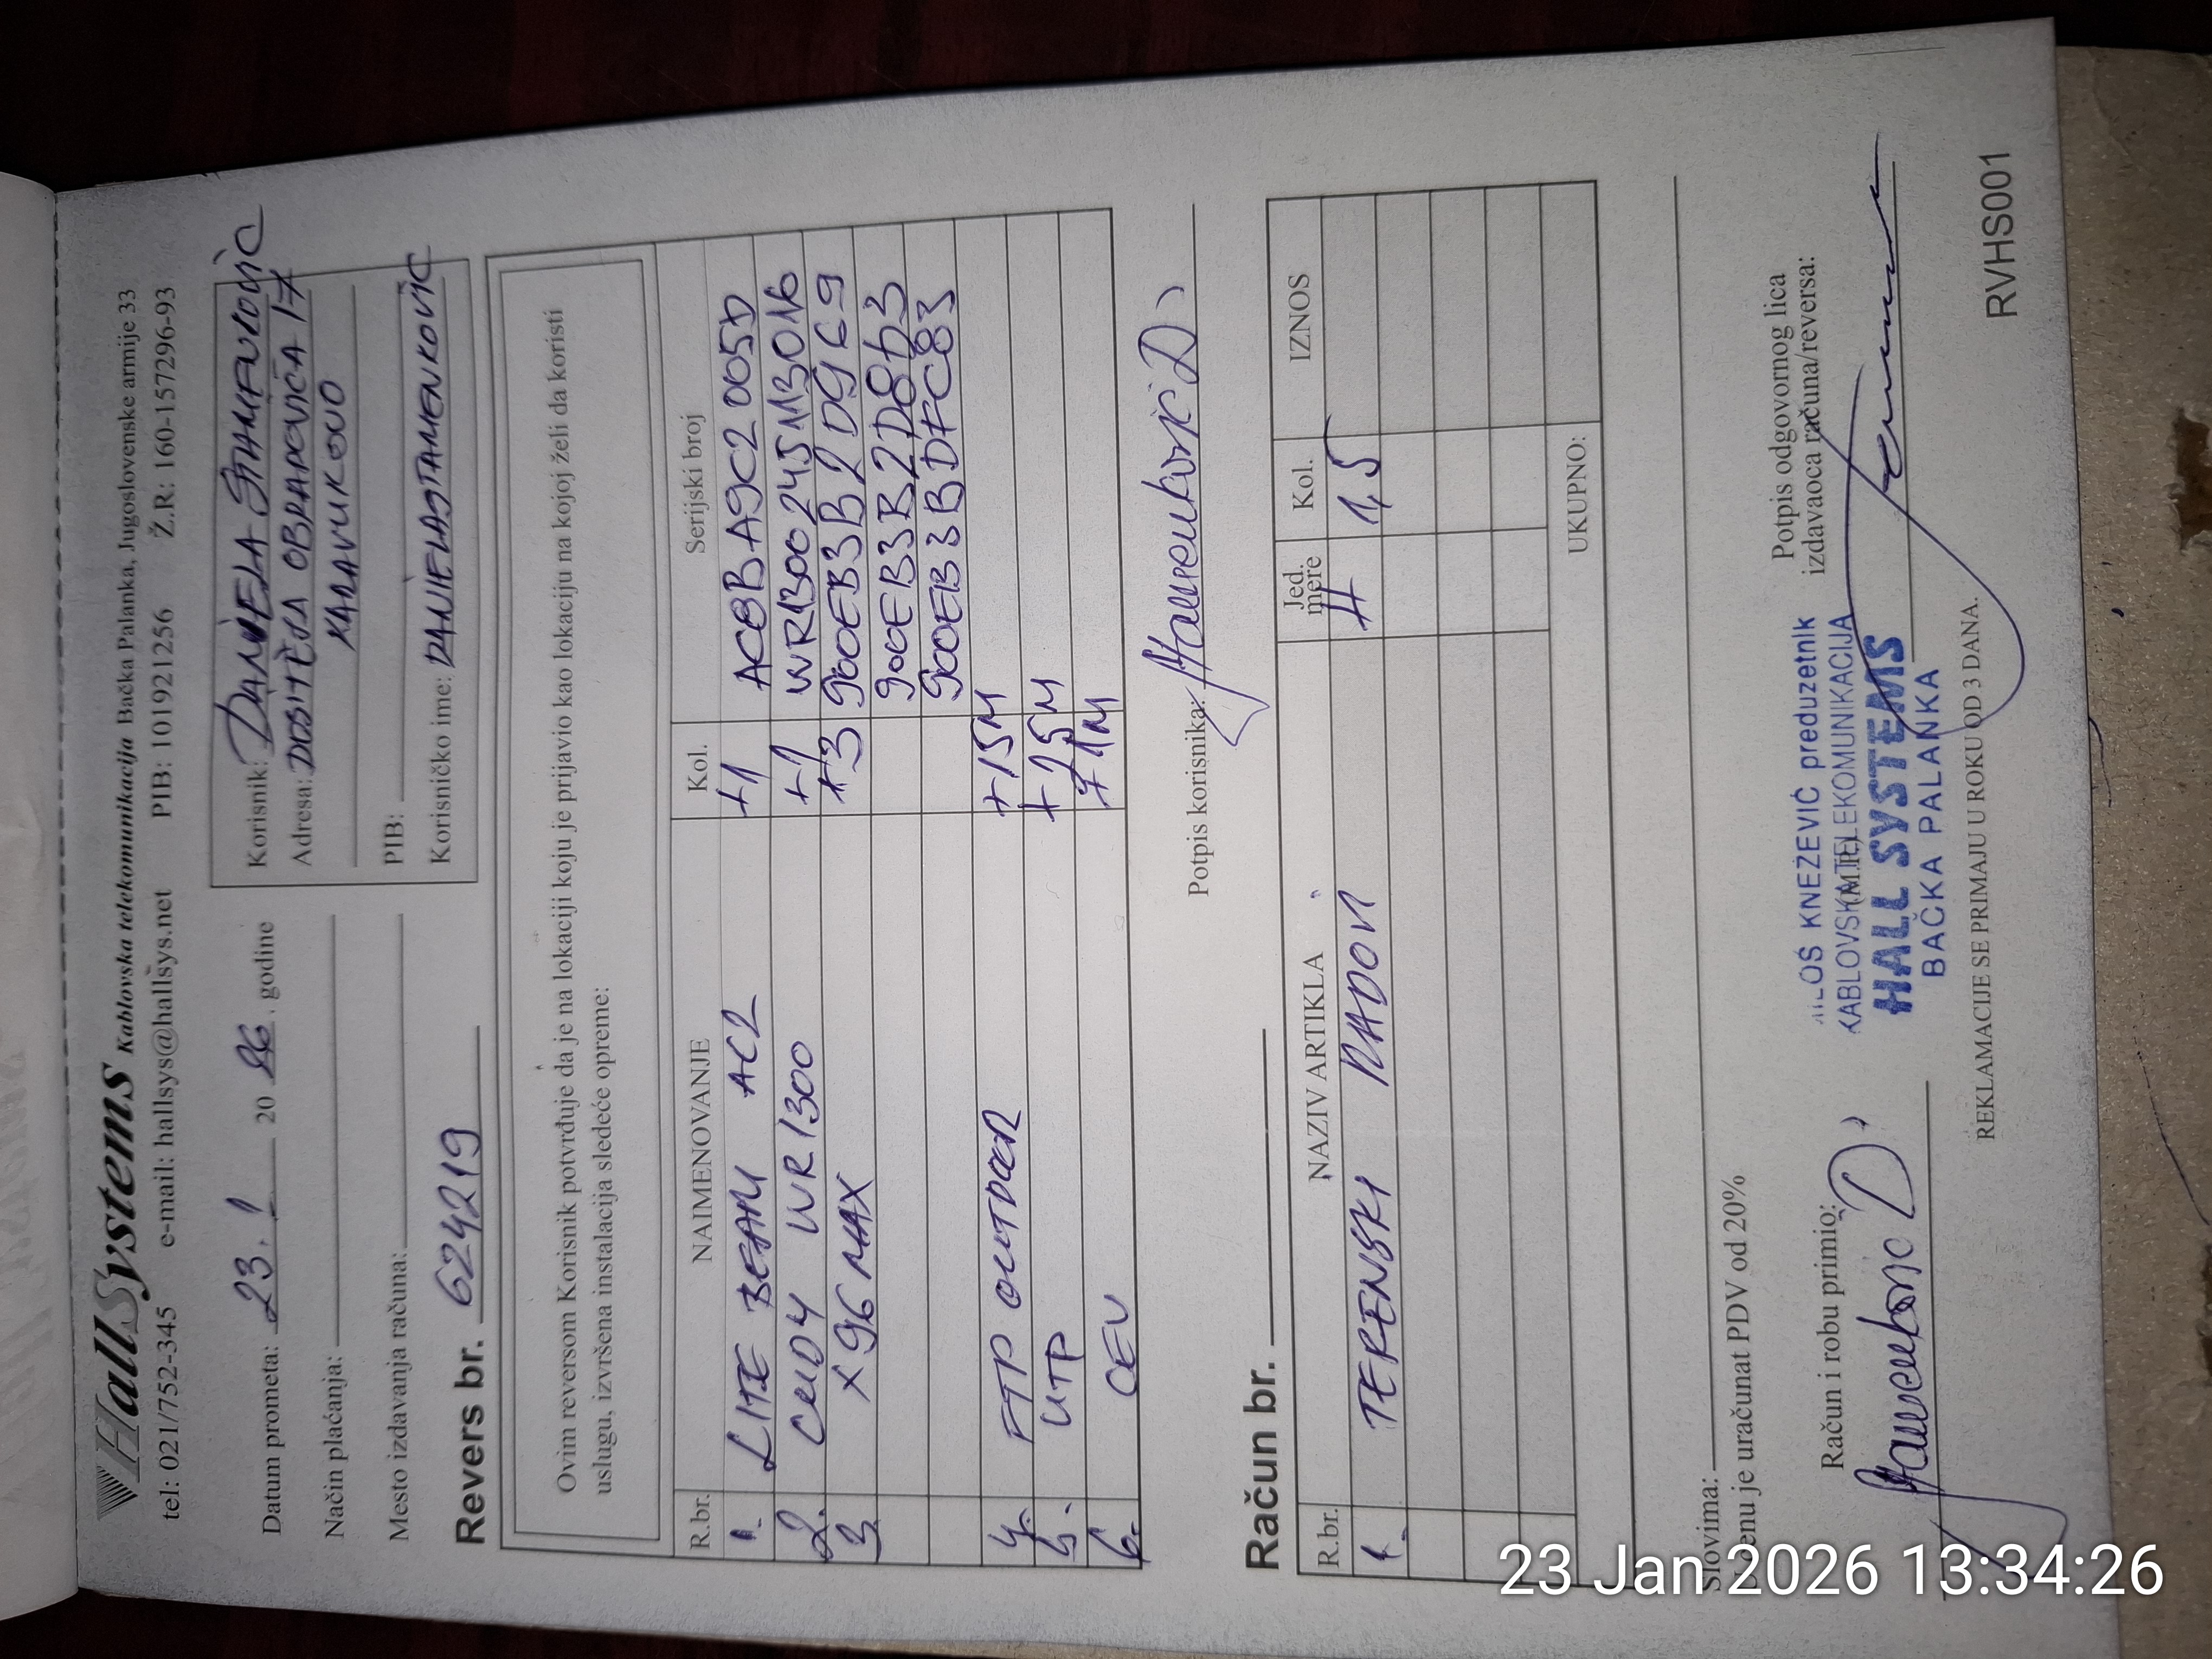 HallSystems Kablovska telekomunikacija Bačka Palanka, Jugoslovenske armije 33
tel: 021/752-345 e-mail: hallsys@hallsys.net PIB: 101921256 Ž.R: 160-157296-93
Datum prometa: 23. 1 20 26. godine
Način plaćanja:
Mesto izdavanja računa:
Revers br. 624219
Korisnik: DANIJELA
Adresa: DOSITEJA OBRADOVIĆA 17
KARAVUKOVO
PIB:
Korisničko ime: DANIJELASTAMENKOVIC
Ovim reversom Korisnik potvrđuje da je na lokaciji koju je prijavio kao lokaciju na kojoj želi da koristi
uslugu, izvršena instalacija sledeće opreme:
R.br. NAIMENOVANJE Kol. Serijski broj
1. LITE BEAM AC2 +1 AC8BA9C2005D
2. CUDY WR1300 +1
3 X96 MAX +3
900EB3BDFC83
4. FTP OUTDOOR +15M
5. UTP +25M
6. CEV +1M
Potpis korisnika: Stamenković D.
Račun br.
R.br. NAZIV ARTIKLA Jed. mere Kol. IZNOS
1. TERENSKI RADOVI H 1,5
UKUPNO:
Slovima:
U cenu je uračunat PDV od 20%
Račun i robu primio:
Stamenković D.
(M.P.)
MILOŠ KNEŽEVIĆ preduzetnik
KABLOVSKA TELEKOMUNIKACIJA
HALL SYSTEMS
BAČKA PALANKA
Potpis odgovornog lica
izdavaoca računa/reversa:
REKLAMACIJE SE PRIMAJU U ROKU OD 3 DANA.
RVHS001
23 Jan 2026 13:34:26